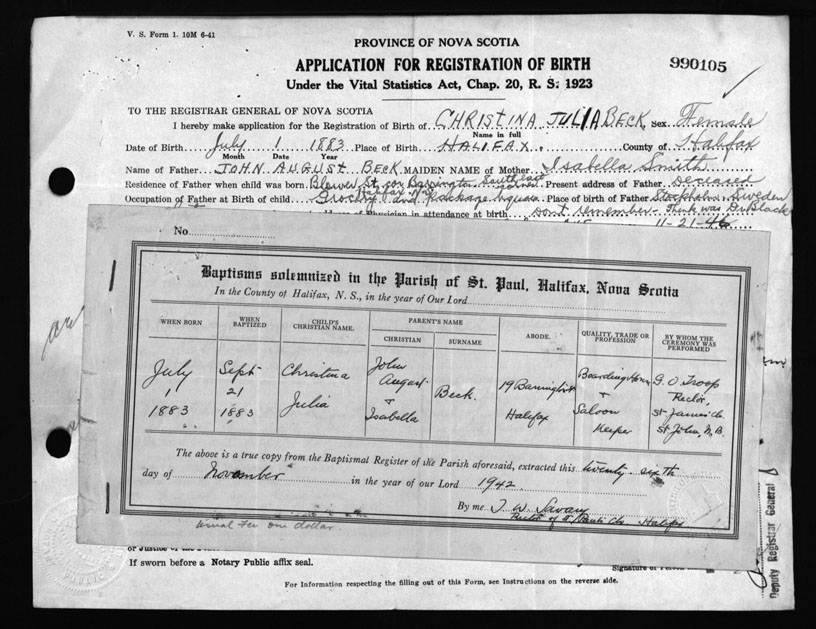 V. S. Form 1. 10M 6-41
PROVINCE OF NOVA SCOTIA
APPLICATION FOR REGISTRATION OF BIRTH
990105
Under the Vital Statistics Act, Chap. 20, R. S. 1923
TO THE REGISTRAR GENERAL OF NOVA SCOTIA
I hereby make application for the Registration of Birth of CHRISTINA JULIA BECK, Sex Female
Name in full
Date of Birth July 1 1883 Place of Birth HALIFAX, County of Halifax
Month Day Year
Name of Father JOHN AUGUST BECK MAIDEN NAME of Mother Isabella Smith
Residence of Father when child was born Blowers St. cor Barrington South east corner Present address of Father deceased
Halifax N.S.
Occupation of Father at Birth of child Grocery and package liquor Place of Birth of Father Stockholm, Sweden
Physician in attendance at birth dont remember Think was Dr Black
11-21-42
No
Baptisms solemnized in the Parish of St. Paul, Halifax, Nova Scotia
In the County of Halifax, N. S., in the year of Our Lord
WHEN BORN WHEN BAPTIZED CHILD'S CHRISTIAN NAME. PARENT'S NAME CHRISTIAN SURNAME ABODE. QUALITY, TRADE OR PROFESSION BY WHOM THE CEREMONY WAS PERFORMED
July 1 1883 Sept 21 1883 Christina Julia John August + Isabella Beck. 19 Barrington St Halifax Boarding House + Saloon Keeper G. O. Troop Rector, St James Ch. St John, N.B.
The above is a true copy from the Baptismal Register of the Parish aforesaid, extracted this twenty sixth
day of November in the year of our Lord 1942
By me T. W. Savary
Rector of St Pauls Ch. Halifax
usual fee one dollar
If sworn before a Notary Public affix seal.
For Information respecting the filling out of this Form, see Instructions on the reverse side.
Deputy Registrar General